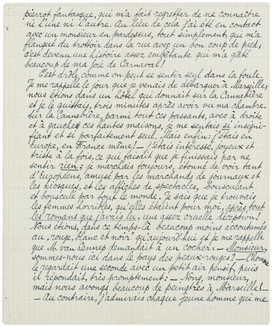 pierrot fantasque, qui m'a fait regretter de ne connaître
ni l'une ni l'autre. Au lieu de cela j'ai été en contact
avec un monsieur en pardessus, tout simplement, qui m'a
flanqué du trottoir dans la rue avec un bon coup de pied,
c'est devenu une histoire assez embêtante qui m'a gâté
beaucoup de ma joie de Carnaval!
C'est drôle comme on peut se sentir seul dans la foule.
Je me rappelle le jour que je venais de débarquer à Marseille,
nous étions dans un hôtel qui donnait sur la Canebière
et je le quittais, trois minutes après avoir vu ma chambre.
Sur la Cannebière, parmi tout ces passants, avec à droite
et à gauche des hautes maisons, je me sentais si insigni-
fiant et si parfaitement seul. Mais enfin: j'étais en
Europe, en France même! — j'étais intéressé, joyeux et
triste à la fois, ce qui faisait que je finissais par ne
sentir rien; je marchais toujours, étonné de voir tant
d'européens, amusé par les marchands de journaux et
les kiosques, et les affiches de spectacles, bousculant
et bousculé par tout le monde. Je sais que je trouvais
les femmes horribles,
les romans que j'avais lu, une assez cruelle déception!
Nous étions, dans ce temps-là beaucoup moins accoutumés
au rouge, blanc et noir qu'aujourd'hui et je me rappelle
que M. van Lennep demandait à un cocher: — Monsieur,
sommes-nous ici dans le pays des peaux-rouges? — L'homme
le regardait une seconde avec un petit air pensif, puis
il répondait, très promptement: — Non, monsieur,
mais nous avons beaucoup de peingtres à Marseille!
— Au contraire, j'admirais chaque jeune homme que me